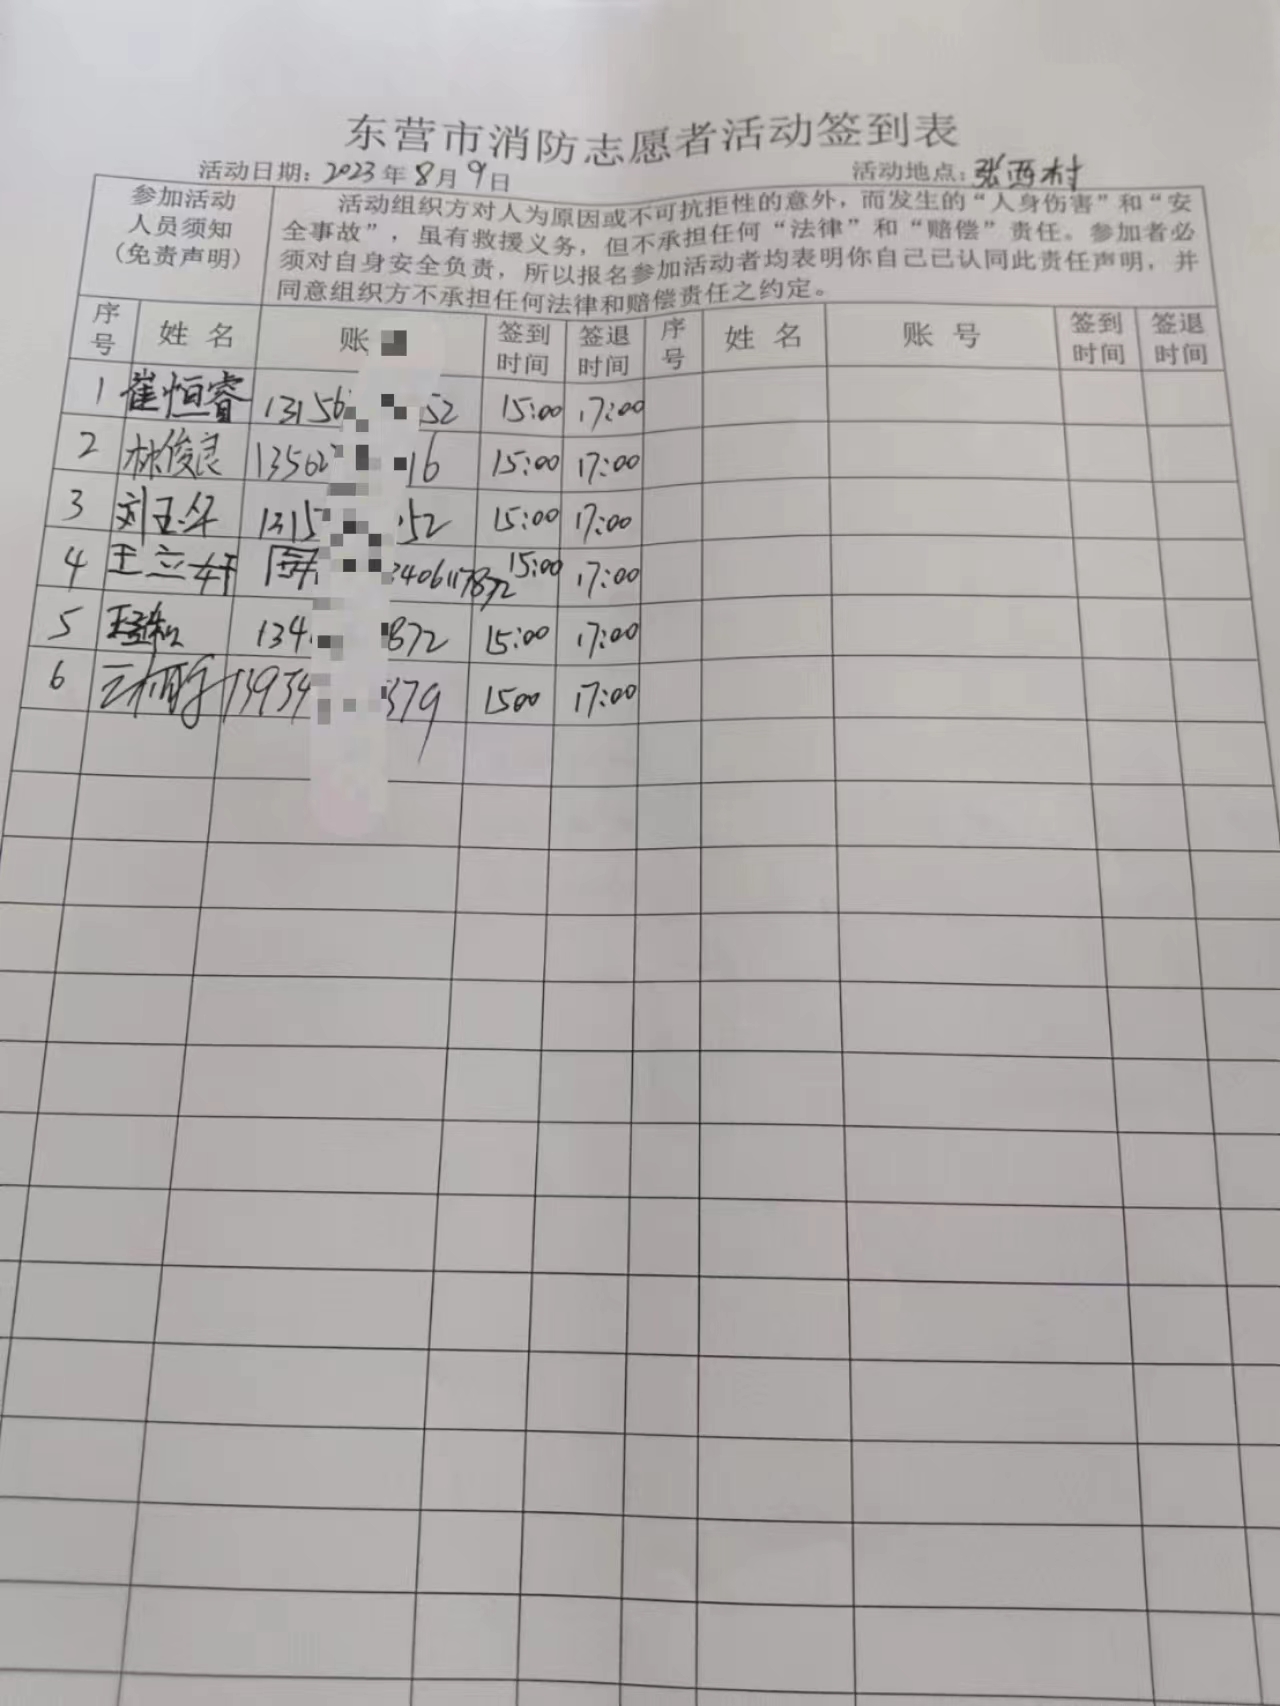 东营市消防志愿者活动签到表
活动日期：2023年8月9日 活动地点：张西村
参加活动
人员须知
（免责声明）
活动组织方对人为原因或不可抗拒性的意外，而发生的“人身伤害”和“安
全事故”，虽有救援义务，但不承担任何“法律”和“赔偿”责任。参加者必
须对自身安全负责，所以报名参加活动者均表明你自己已认同此责任声明，并
同意组织方不承担任何法律和赔偿责任之约定。
序号 姓名 账 签到时间 签退时间 序号 姓名 账号 签到时间 签退时间
1 崔恒睿 13156 52 15:00 17:00
2 林俊良 13562 16 15:00 17:00
3 刘玉华 1315 52 15:00 17:00
4 王立轩 3406117872 15:00 17:00
5 134 872 15:00 17:00
6 13934 379 1500 17:00